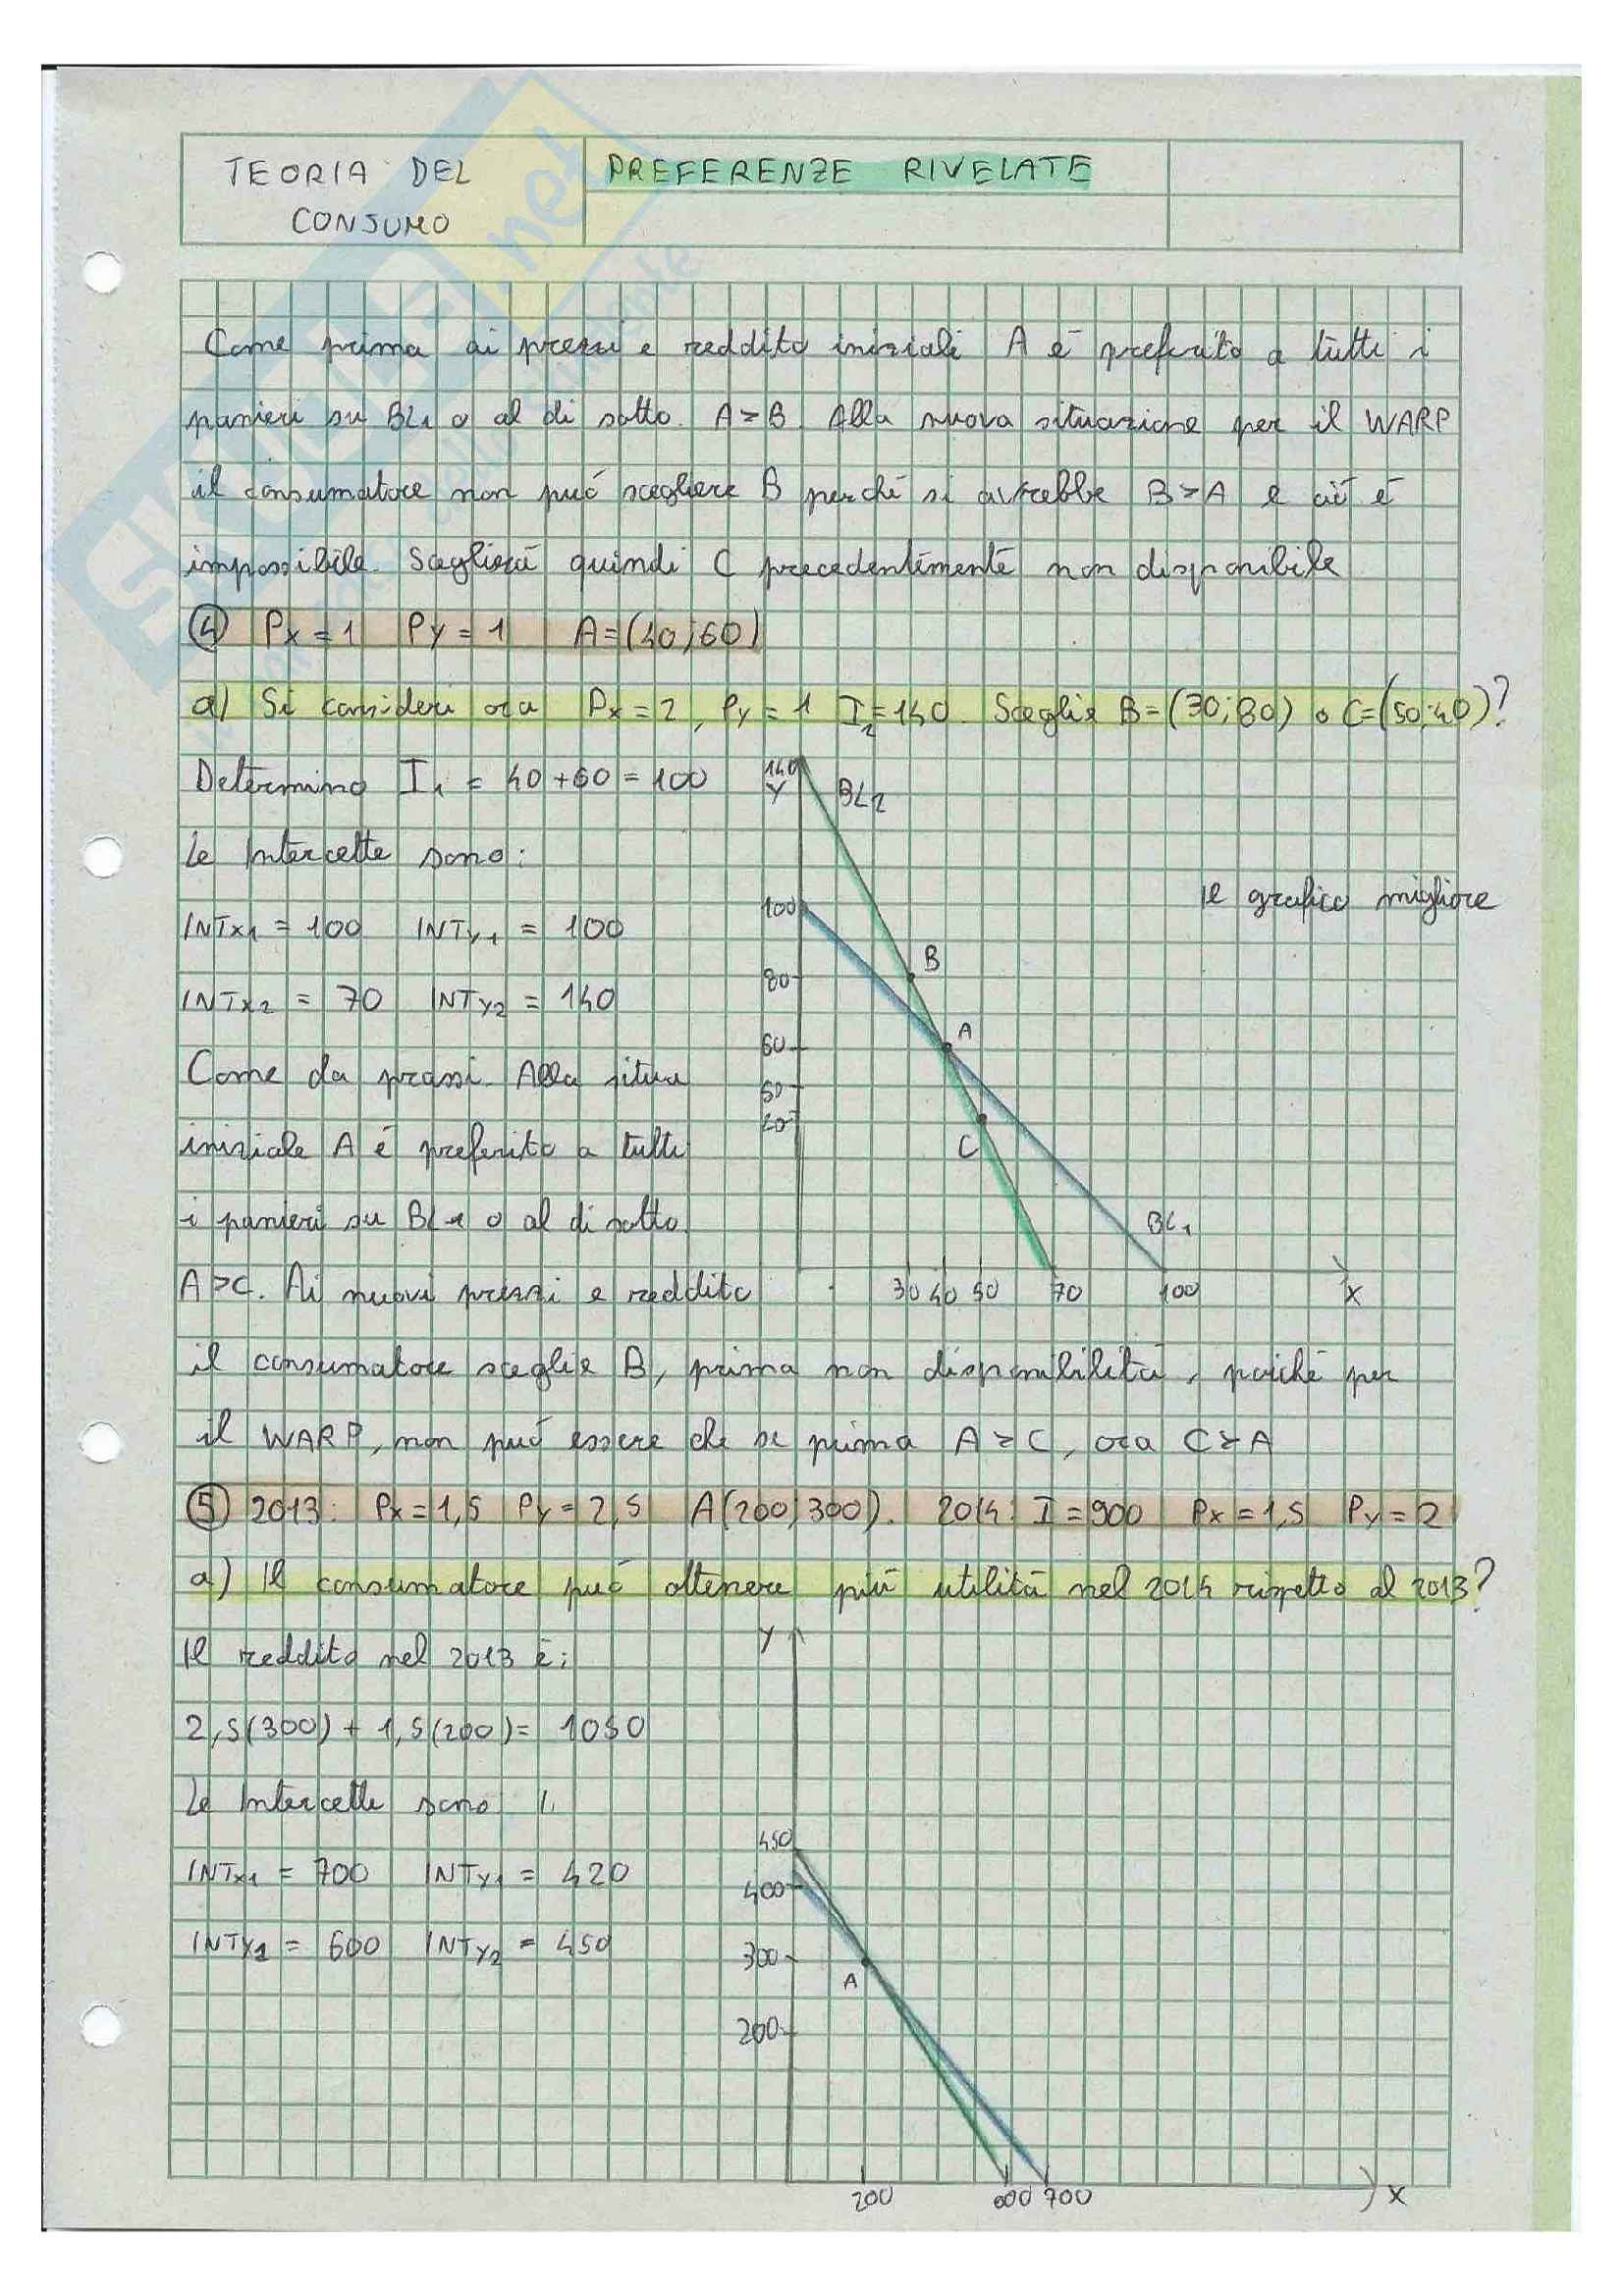 TEORIA DEL CONSUMO
PREFERENZE RIVELATE
Come prima ai prezzi e reddito iniziali A é preferito a tutti i
panieri su BL1 o al di sotto. A>B Alla nuova situazione per il WARP
il consumatore non può scegliere B perché si avrebbe B>A e ciò é
impossibile. Sceglierà quindi C precedentemente non disponibile
④ Px=1 Py=1 A=(40;60)
a) Si consideri ora Px=2, Py=1 I2=140. Sceglie B=(30;80) o C=(50;40)?
Determino I1 = 40+60=100
Le Intercette sono:
INTx1 = 100 INTy1 = 100
INTx2 = 70 INTy2 = 140
Come da prassi. Alla situa
iniziale A é preferito a tutti
i panieri su BL1 o al di sotto.
A>C. Ai nuovi prezzi e reddito
il consumatore sceglie B, prima non disponibilità, poiché per
il WARP, non può essere che se prima A>C, ora C>A
140
Y
BL2
Il grafico migliore
100
B
80
A
60
50
40
C
BL1
30 40 50 70 100 X
⑤ 2013: Px=1,5 Py=2,5 A(200;300). 2014: I=900 Px=1,5 Py=2
a) Il consumatore può ottenere più utilità nel 2014 rispetto al 2013?
Il reddito nel 2013 è:
2,5(300)+1,5(200)= 1050
Le Intercette sono
INTx1 = 700 INTy1 = 420
INTx2 = 600 INTy2 = 450
Y
450
400
300
A
200
200 600 700 X
SKUOLA.net